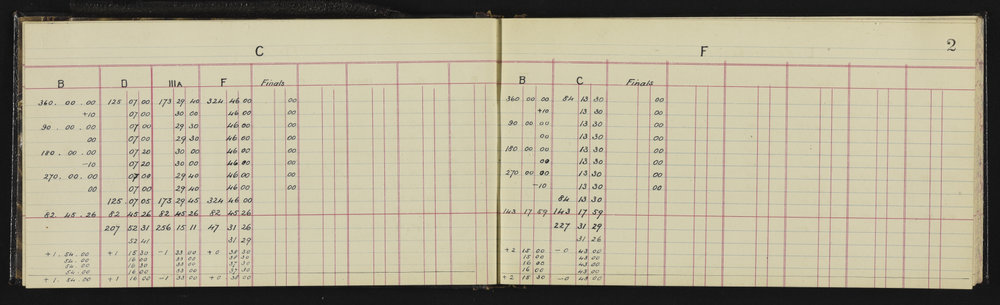 C
B D IIIA F Finals
360 . 00 . 00 125 07 00 173 29 40 324 46 00 00
+10 07 00 30 00 46 00 00
90 . 00 . 00 07 00 29 30 46 00 00
00 07 00 29 30 46 00 00
180 . 00 . 00 07 20 30 00 46 00 00
-10 07 20 30 00 46 00 00
270 . 00 . 00 07 00 29 40 46 00 00
00 07 00 29 40 46 00 00
125 . 07 05 173 29 45 324 46 00
82 . 45 . 26 82 45 26 82 45 26 82 45 26
207 52 31 256 15 11 47 31 26
52 41 31 29
+1 . 54 . 00 +1 15 30 -1 33 00 +0 38 30
54 . 00 16 00 33 00 38 30
54 . 00 16 30 33 00 37 30
54 . 00 16 00 33 00 37 30
+1 . 54 00 +1 16 00 -1 33 00 +0 38 00
2
F
B C Finals
360 00 00 84 13 30 00
+10 13 30 00
90 00 00 13 30 00
00 13 30 00
180 00 00 13 30 00
00 13 30 00
270 00 00 13 30 00
-10 13 30 00
84 13 30
143 17 59 143 17 59
227 31 29
31 26
+2 15 00 -0 43 00
15 00 43 00
16 00 43 00
16 00 43 00
+2 15 30 -0 43 00